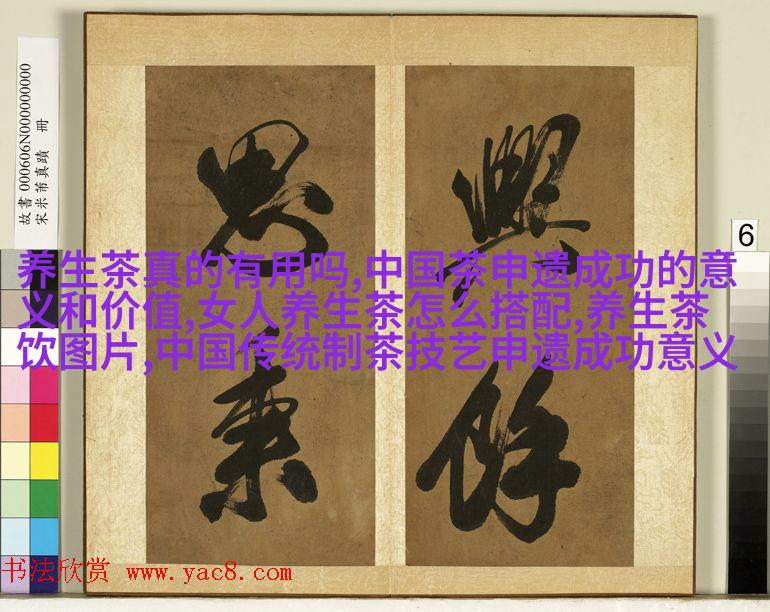 故書 000606N000000000
宋米芾真蹟 冊
興
餘
思
6
养生茶真的有用吗,中国茶申遗成功的意
义和价值,女人养生茶怎么搭配,养生茶
饮图片,中国传统制茶技艺申遗成功意义
书法欣赏 www.yac8.com